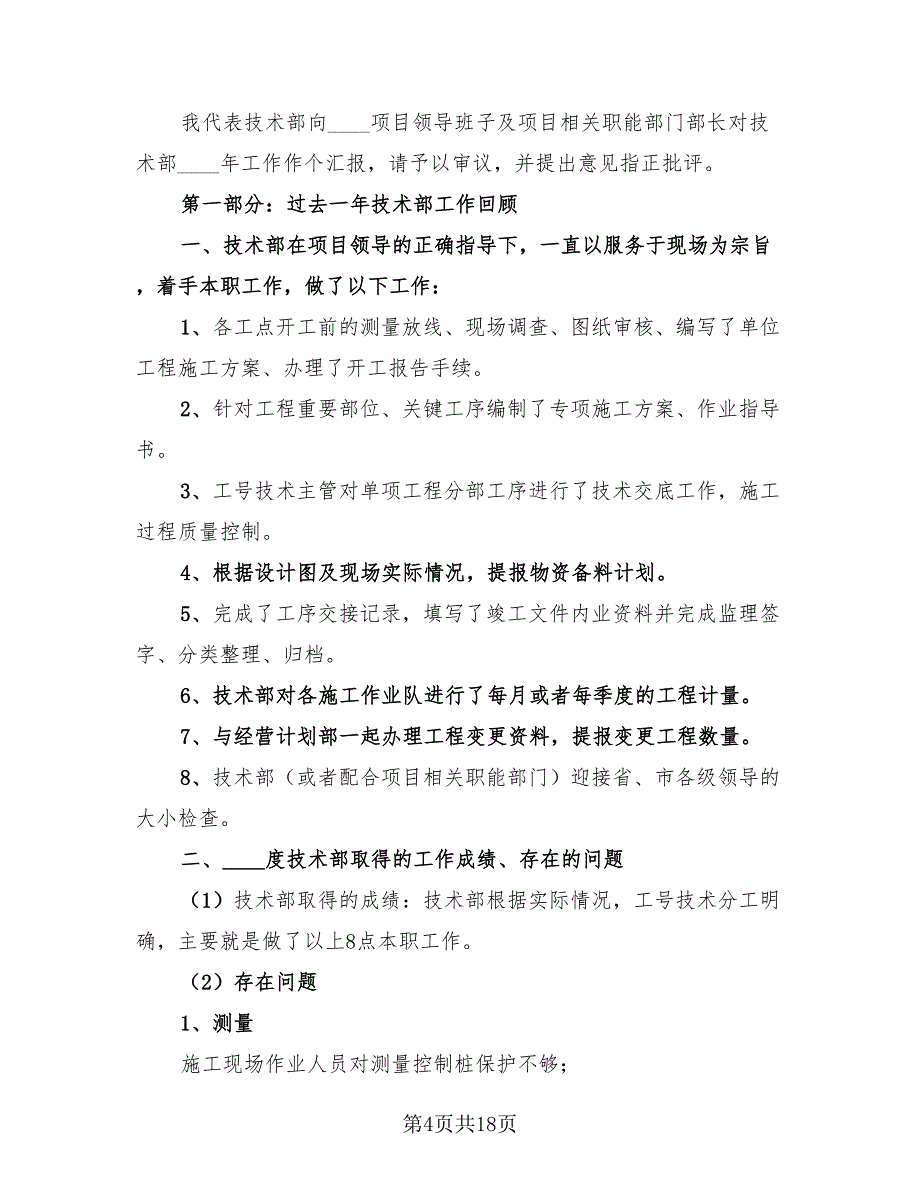 我代表技术部向____项目领导班子及项目相关职能部门部长对技
术部____年工作作个汇报，请予以审议，并提出意见指正批评。
第一部分：过去一年技术部工作回顾
一、技术部在项目领导的正确指导下，一直以服务于现场为宗旨
，着手本职工作，做了以下工作：
1、各工点开工前的测量放线、现场调查、图纸审核、编写了单位
工程施工方案、办理了开工报告手续。
2、针对工程重要部位、关键工序编制了专项施工方案、作业指导
书。
3、工号技术主管对单项工程分部工序进行了技术交底工作，施工
过程质量控制。
4、根据设计图及现场实际情况，提报物资备料计划。
5、完成了工序交接记录，填写了竣工文件内业资料并完成监理签
字、分类整理、归档。
6、技术部对各施工作业队进行了每月或者每季度的工程计量。
7、与经营计划部一起办理工程变更资料，提报变更工程数量。
8、技术部（或者配合项目相关职能部门）迎接省、市各级领导的
大小检查。
二、____度技术部取得的工作成绩、存在的问题
（1）技术部取得的成绩：技术部根据实际情况，工号技术分工明
确，主要就是做了以上8点本职工作。
（2）存在问题
1、测量
施工现场作业人员对测量控制桩保护不够；
第4页共18页